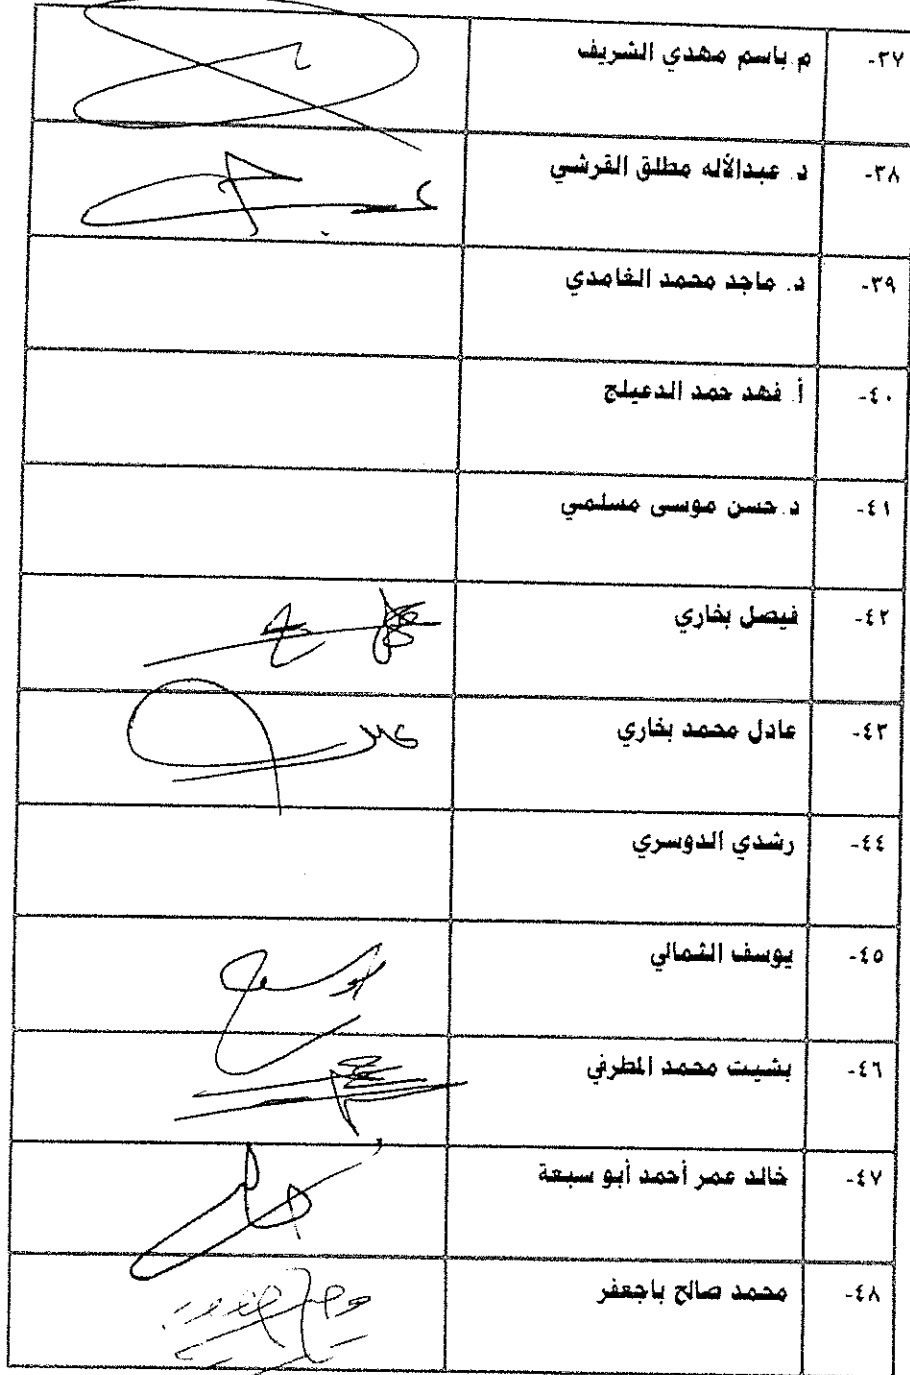 ٣٧- م.باسم مهدي الشريف
٣٨- د. عبدالأله مطلق القرشي
٣٩- د. ماجد محمد الغامدي
٤٠- أ. فهد حمد الدعيلج
٤١- د.حسن موسى مسلمي
٤٢- فيصل بخاري
٤٣- عادل محمد بخاري
٤٤- رشدي الدوسري
٤٥- يوسف الثمالي
٤٦- بشيت محمد المطرفي
٤٧- خالد عمر أحمد أبو سبعة
٤٨- محمد صالح باجعفر